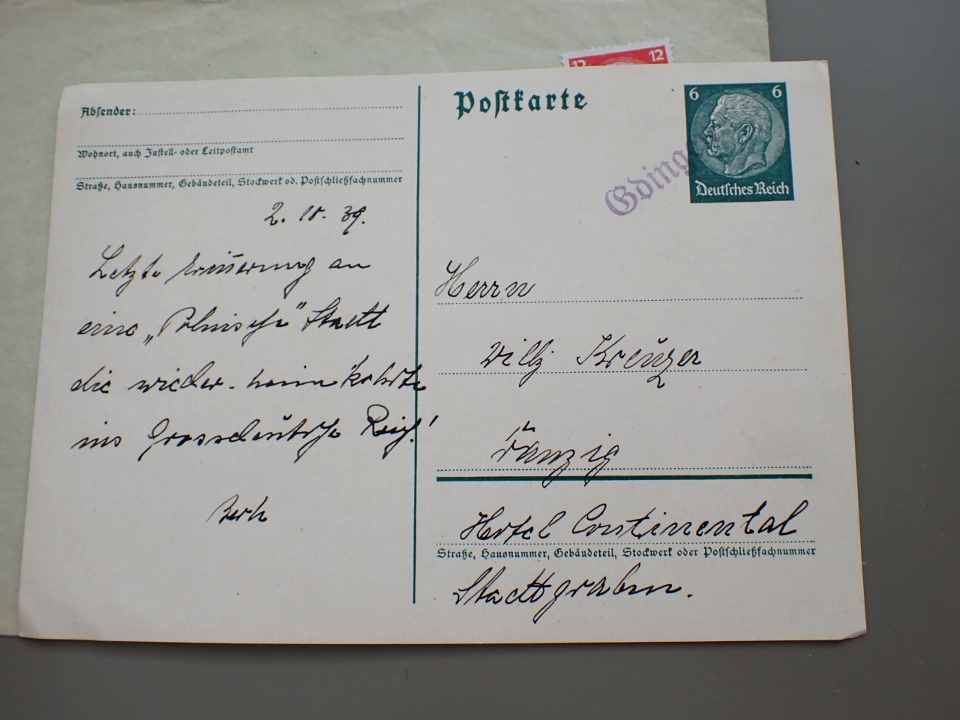 12 12
Absender:
Wohnort, auch Zustell- oder Leitpostamt
Straße, Hausnummer, Gebäudeteil, Stockwerk od. Postschließfachnummer
2. 10. 39.
Letzte Erinnerung an
eine „Polnische" Stadt
die wieder heimkehrte
ins Grossdeutsche Reich!
Postkarte
6 6
Deutsches Reich
Gding
Herrn
Willy Kreuzer
Danzig
Hotel Continental
Straße, Hausnummer, Gebäudeteil, Stockwerk oder Postschließfachnummer
Stadtgraben.